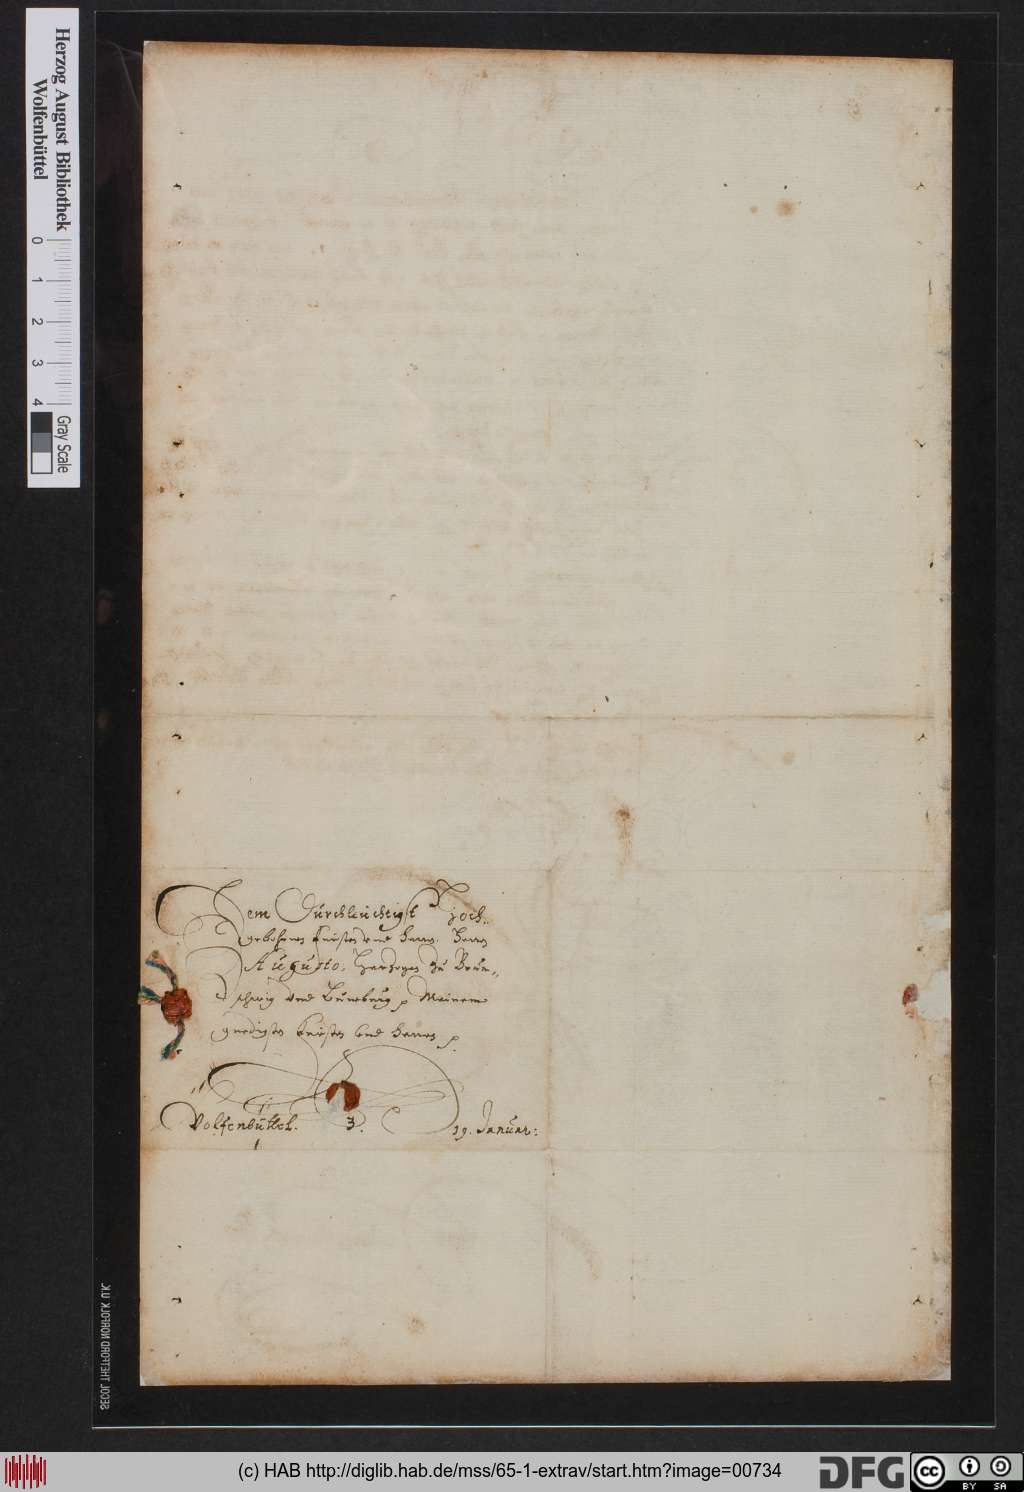 Herzog August Bibliothek
Wolfenbüttel
0 1 2 3 4
Gray Scale
Dem Durchleuchtigst Hoch„
gebohrnen Fürsten vnd Herrn. Herrn
Augusto, Hertzogen zu Braun„
schweig vnd Luneburg Meinem
gnedigsten Fürsten vnd Herrn
Wolfenbüttel. 3. 19. Januar:
SECOL THETFORD NORFOLK U.K.
(c) HAB http://diglib.hab.de/mss/65-1-extrav/start.htm?image=00734
DFG
cc
BY SA